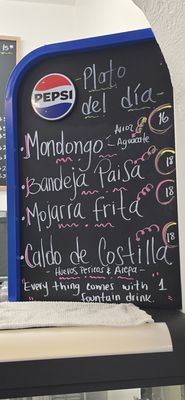 PEPSI
Plato
del día
Mondongo Arroz & Aguacate 16
Bandeja Paisa 18
Mojarra frita 18
Caldo de Costilla 18
Huevos Pericos & Arepa
"Every thing comes with "1
fountain drink.